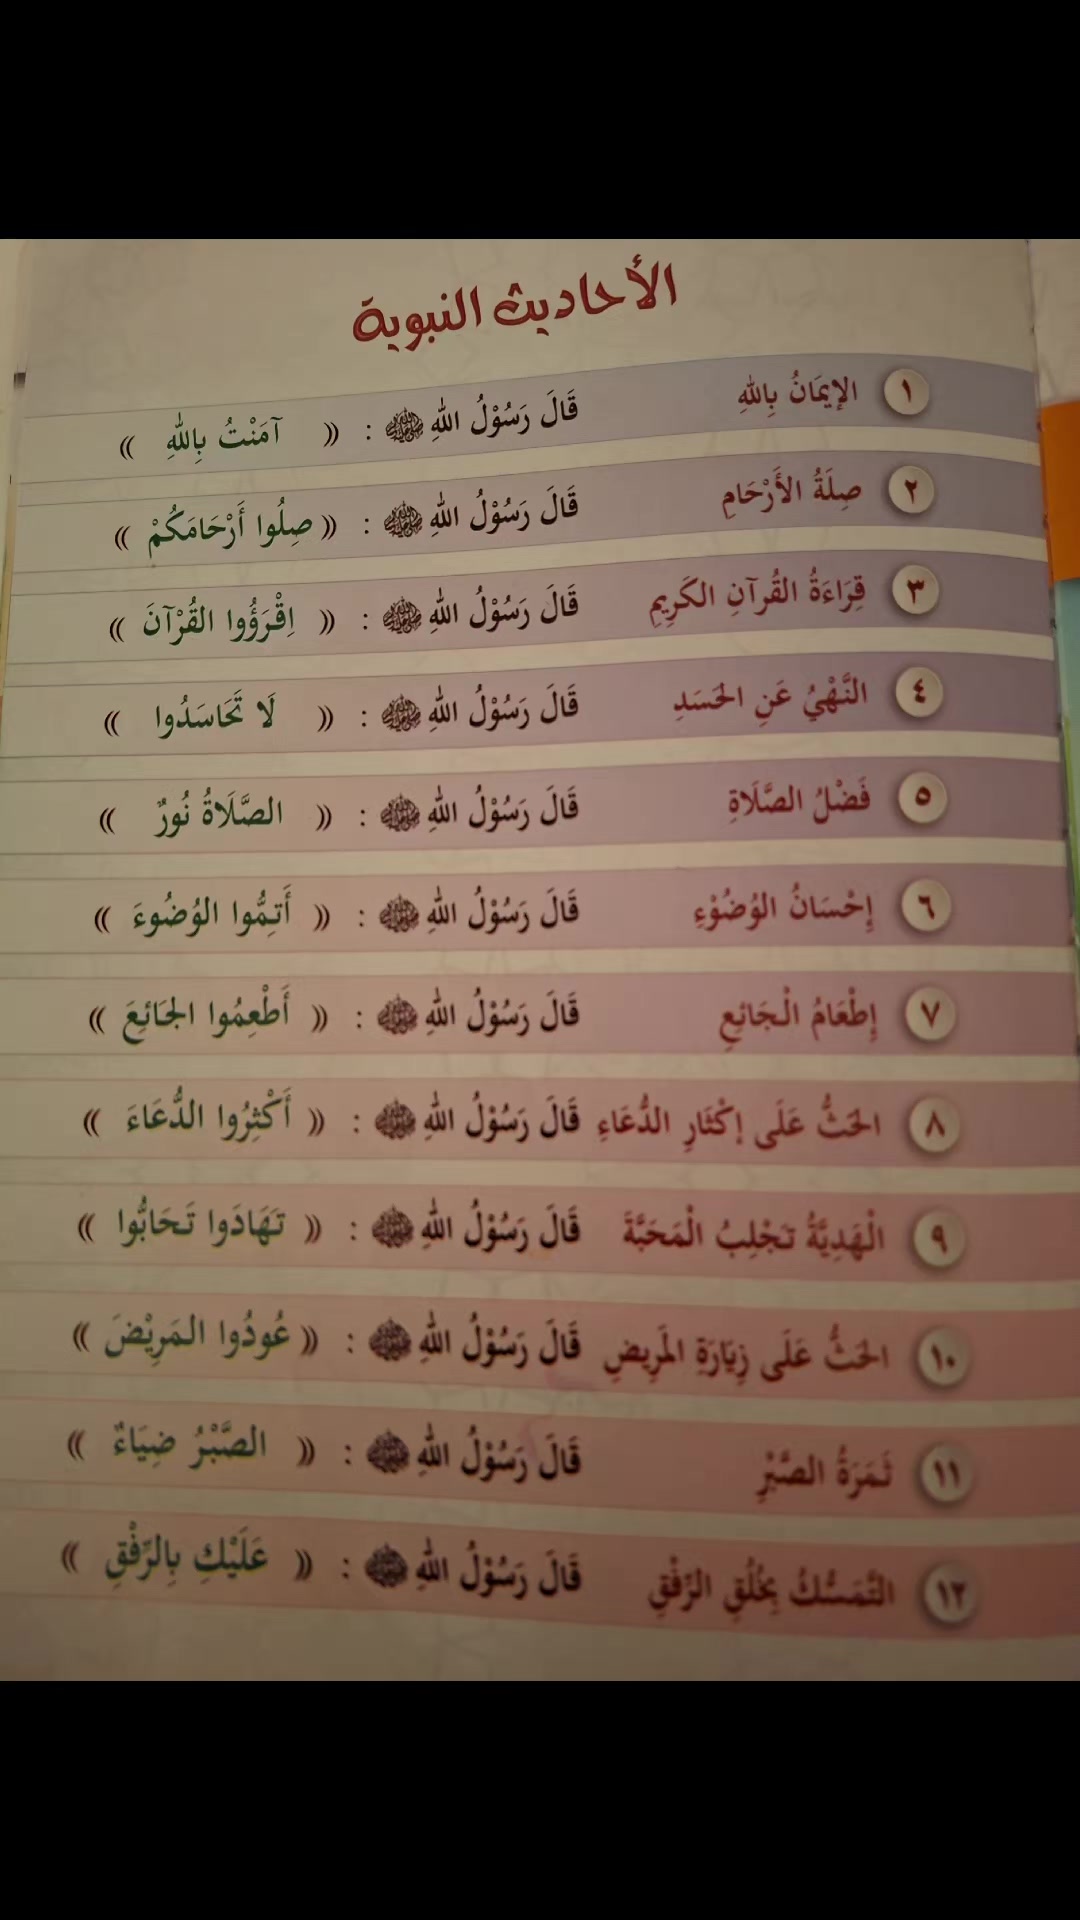 الأحاديث النبوية
١ الإيمَانُ بِاللهِ قَالَ رَسُوْلُ اللهِ ﷺ : (( آمَنْتُ بِاللهِ ))
٢ صِلَةُ الأَرْحَامِ قَالَ رَسُوْلُ اللهِ ﷺ : (( صِلُوا أَرْحَامَكُمْ ))
٣ قِرَاءَةُ القُرآنِ الكَرِيمِ قَالَ رَسُوْلُ اللهِ ﷺ : (( اِقْرَؤُوا القُرْآنَ ))
٤ النَّهْيُ عَنِ الحَسَدِ قَالَ رَسُوْلُ اللهِ ﷺ : (( لَا تَحَاسَدُوا ))
٥ فَضْلُ الصَّلَاةِ قَالَ رَسُوْلُ اللهِ ﷺ : (( الصَّلَاةُ نُورٌ ))
٦ إِحْسَانُ الوُضُوْءِ قَالَ رَسُوْلُ اللهِ ﷺ : (( أَتِمُّوا الوُضُوءَ ))
٧ إِطْعَامُ الْجَائِعِ قَالَ رَسُوْلُ اللهِ ﷺ : (( أَطْعِمُوا الجَائِعَ ))
٨ الحَثُّ عَلَى إِكْثَارِ الدُّعَاءِ قَالَ رَسُوْلُ اللهِ ﷺ : (( أَكْثِرُوا الدُّعَاءَ ))
٩ الْهَدِيَّةُ تَجْلِبُ الْمَحَبَّةَ قَالَ رَسُوْلُ اللهِ ﷺ : (( تَهَادَوا تَحَابُّوا ))
١٠ الحَثُّ عَلَى زِيَارَةِ المَرِيضِ قَالَ رَسُوْلُ اللهِ ﷺ : (( عُودُوا المَرِيْضَ ))
١١ ثَمَرَةُ الصَّبْرِ قَالَ رَسُوْلُ اللهِ ﷺ : (( الصَّبْرُ ضِيَاءٌ ))
١٢ التَّمَسُّكُ بِخُلُقِ الرِّفْقِ قَالَ رَسُوْلُ اللهِ ﷺ : (( عَلَيْكِ بِالرِّفْقِ ))